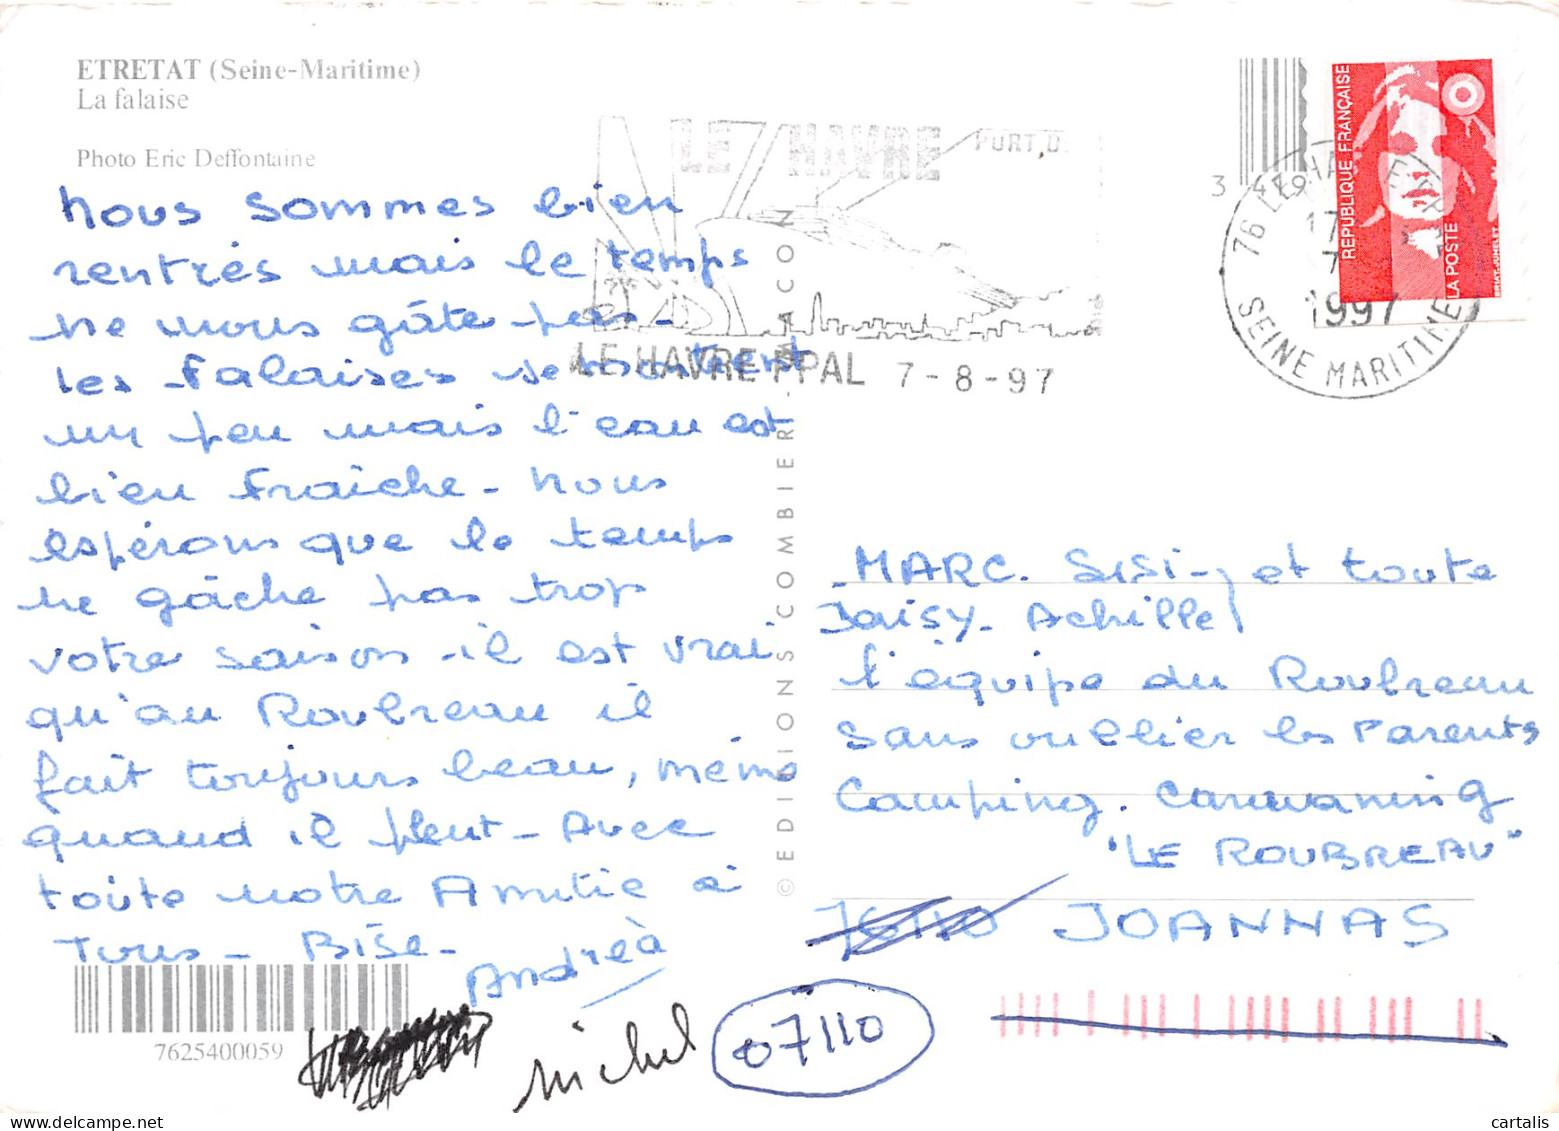 ETRETAT (Seine-Maritime)
La falaise
Photo Eric Deffontaine
nous sommes bien
rentrés mais le temps
ne nous gâte pas -
les falaises se montrent
un peu mais l'eau est
bien fraîche - nous
espérons que le temps
ne gâche pas trop
votre saison - il est vrai
qu'au Roubreau il
fait toujours beau, même
quand il pleut - Avec
toute notre Amitié à
Tous - Bise -
Andréà
michel
7625400059
© EDITIONS COMBIER - MACON
LE HAVRE
PORT D
LE HAVRE PPAL 7-8-97
3 4 9
76 LE HAVRE
17
7
1997
SEINE MARITIME
REPUBLIQUE FRANÇAISE
LA POSTE
MARC. SISI - et toute
Daisy - Achille
l'équipe du Roubreau
sans oublier les Parents
Camping. Caravaning
"LE ROUBREAU"
JOANNAS
07110
cartalis